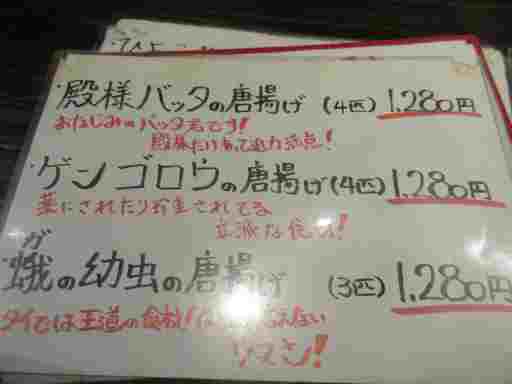 ・殿様バッタの唐揚げ (4匹) 1.280円
おなじみのバッタ君です!
殿様だけあって迫力満点!
・ゲンゴロウの唐揚げ(4匹) 1.280円
薬にされたり養生されてる
立派な食材!
ガ
・蛾の幼虫の唐揚げ (3匹) 1.280円
タイでは王道の食材!